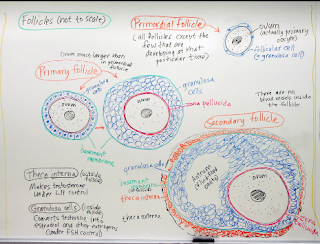 Follicles (not to scale)
Primordial follicle
(all follicles except the
few that are
developing at that
particular time)
ovum
(actually primary
oocyte)
follicular cell
(a granulosa cell)
(ovum much larger than
in primordial
follicle)
Primary follicle
granulosa
cells
ovum
granulosa
cells
zona pellucida
ovum
There are no
blood vessels inside
the follicle
basement
membrane
Secondary follicle
Theca interna (outside
follicle)
Makes testosterone
under LH control
Granulosa cells (inside
follicle)
Converts testosterone into
estradiol and other estrogens
(under FSH control)
granulosa
basement
membrane
theca interna
theca externa
Antrum
(fluid filled
cavity)
ovum
zona
pellucida